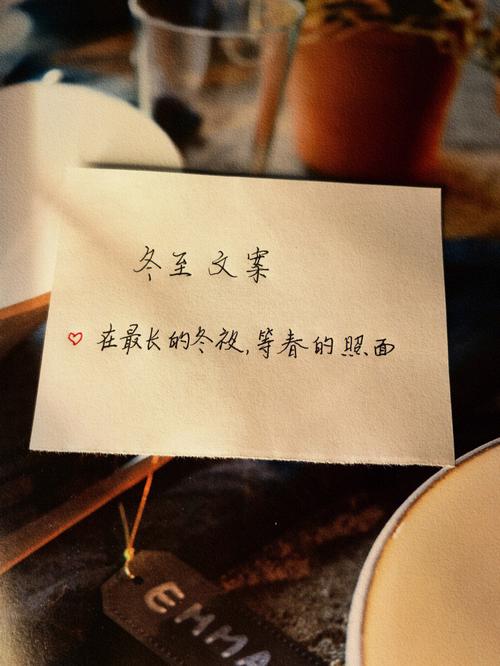 冬至文案
♡ 在最长的冬夜,等春的照面
EMMA